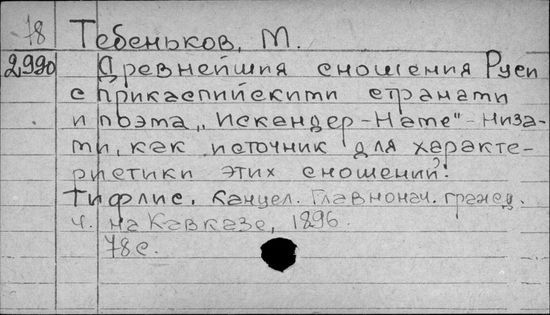 78 Тебеньков, М.
2,990 Древнейшия сношения Руси
с прикаспийскими странами
и поэма „Искендер-Наме"-Низа-
ми, как источник для характе-
ристики этих сношений.
Тифлис. Канцел. Главнонач. гражд.
ч. на Кавказе, 1896.
78 с.